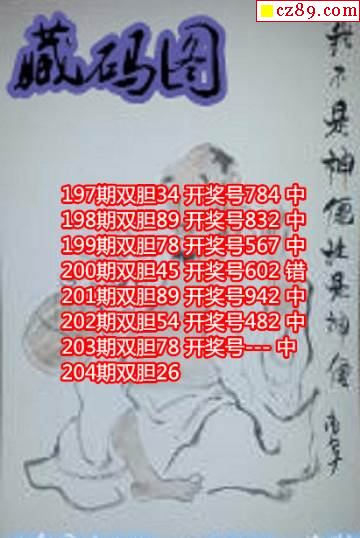 cz89.com
藏码图
我不是神僊胜是神僊
197期双胆34 开奖号784 中
198期双胆89 开奖号832 中
199期双胆78 开奖号567 中
200期双胆45 开奖号602 错
201期双胆89 开奖号942 中
202期双胆54 开奖号482 中
203期双胆78 开奖号--- 中
204期双胆26